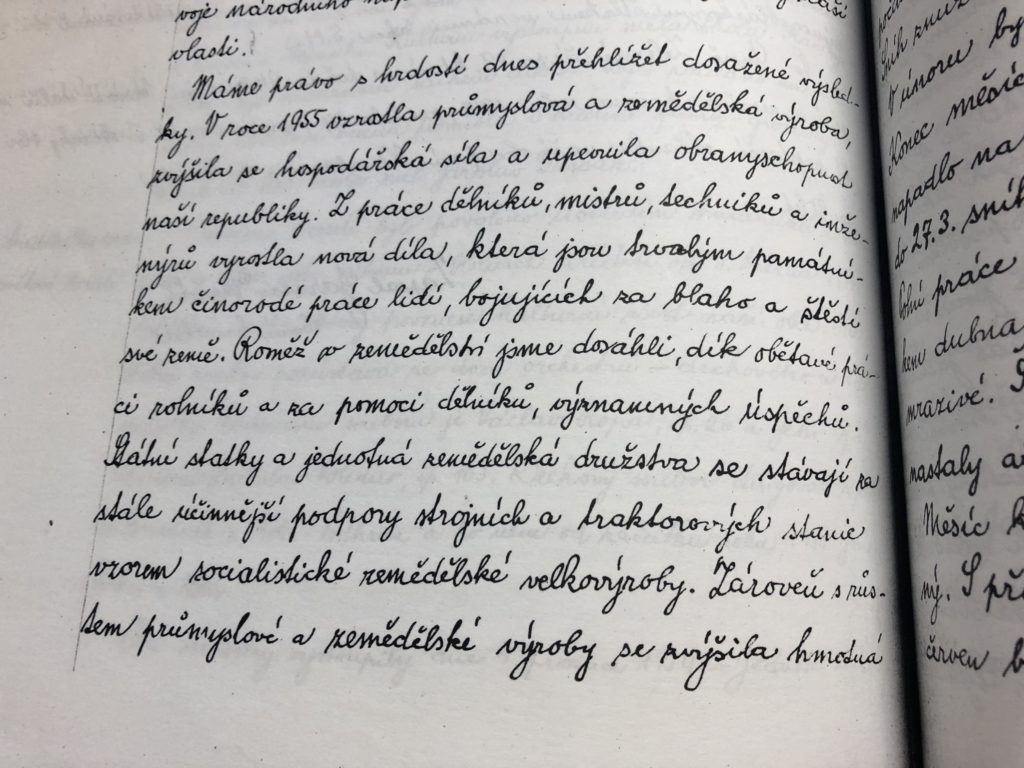 voje národního
vlasti.
Máme právo s hrdostí dnes přehlížet dosažené výsled-
ky. V roce 1955 vzrostla průmyslová a zemědělská výroba,
zvýšila se hospodářská síla a upevnila obranyschopnost
naší republiky. Z práce dělníků, mistrů, techniků a inže-
nýrů vyrostla nová díla, která jsou trvalým památní-
kem činorodé práce lidí, bojujících za blaho a štěstí
své země. Rovněž v zemědělství jsme dosáhli, dík obětavé prá-
ci rolníků a za pomoci dělníků, významných úspěchů.
Státní statky a jednotná zemědělská družstva se stávají za
stále účinnější podpory strojních a traktorových stanic
vzorem socialistické zemědělské velkovýroby. Zároveň s růs-
tem průmyslové a zemědělské výroby se zvýšila hmotná
V únoru by
Konec měsíc
napadlo na
do 27.3. sníh
práce
kem dubna
mrazivé.
nastaly
Měsíc
ný. S
červen